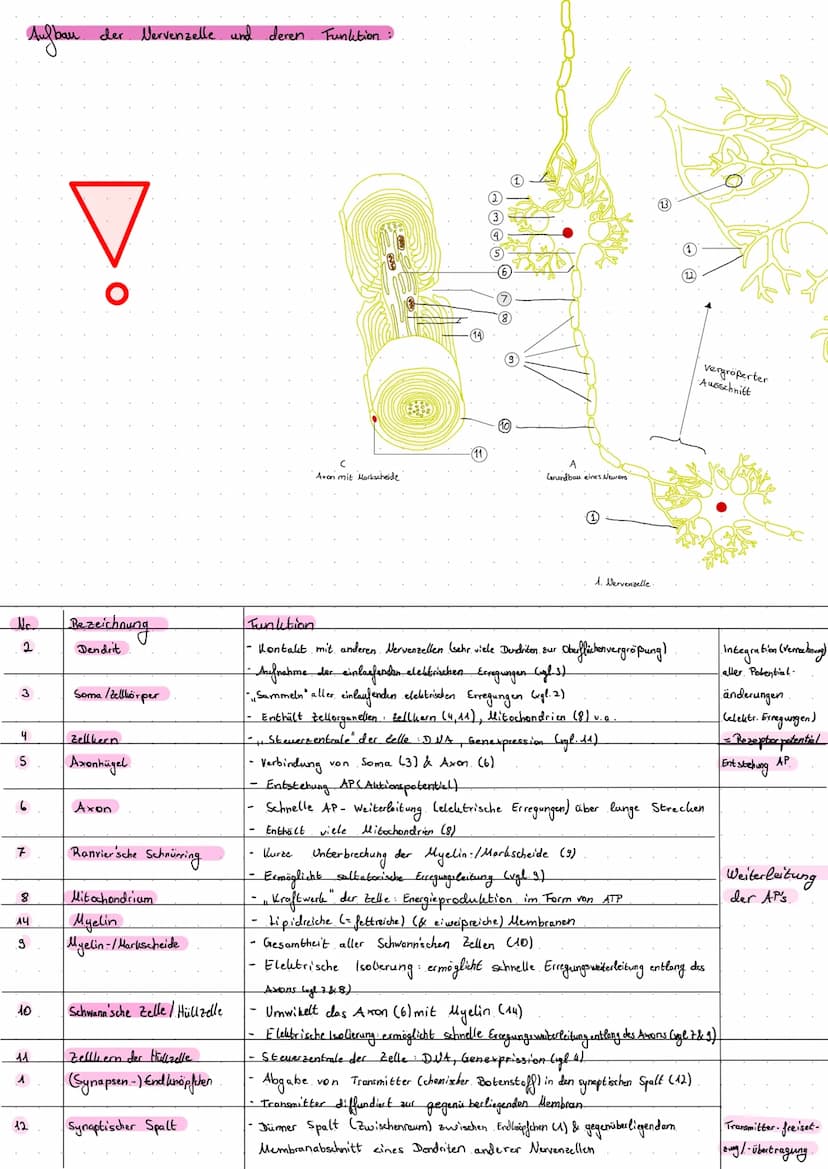 Aufbau der Nervenzelle und deren Funktion:
1
2
3
4
5
6
7
8
14
9
10
11
13
1
12
vergrößerter
Ausschnitt
C
Axon mit Markscheide
A
Grundbau eines Neurons
1
1. Nervenzelle
Nr. Bezeichnung Funktion
2 Dendrit - Kontakt mit anderen Nervenzellen (sehr viele Dendriten zur Oberflächenvergrößung) Integration (Verrechnung)
- Aufnahme der einlaufenden elektrischen Erregungen (vgl.3) aller Potential-
3 Soma/Zellkörper - "Sammeln" aller einlaufenden elektrischen Erregungen (vgl.2) änderungen
- Enthält Zellorganellen: Zellkern (4,11), Mitochondrien (8) u.a. (elektr. Erregungen)
4 Zellkern - "Steuerzentrale" der Zelle: DNA, Genexpression (vgl.11) = Rezeptorpotential
5 Axonhügel - Verbindung von Soma (3) & Axon (6) Entstehung AP
- Entstehung AP (Aktionspotential)
6 Axon - Schnelle AP-Weiterleitung (elektrische Erregungen) über lange Strecken
- Enthält viele Mitochondrien (8)
7 Ranvier'sche Schnürring - Kurze Unterbrechung der Myelin-/Markscheide (9)
- Ermöglicht saltatorische Erregungsleitung (vgl.9) Weiterleitung
8 Mitochondrium - "Kraftwerk" der Zelle: Energieproduktion im Form von ATP der AP's
14 Myelin - Lipidreiche (= fettreiche) (& eiweißreiche) Membranen
9 Myelin-/Markscheide - Gesamtheit aller Schwann'schen Zellen (10)
- Elektrische Isolierung: ermöglicht schnelle Erregungsweiterleitung entlang des
Axons (vgl 7&8)
10 Schwann'sche Zelle/Hüllzelle - Umwikelt das Axon (6) mit Myelin (14)
- Elektrische Isolierung: ermöglicht schnelle Erregungsweiterleitung entlang des Axons (vgl 7&9)
11 Zellkern der Hüllzelle - Steuerzentrale der Zelle: DNA, Genexprission (vgl 4)
1 (Synapsen-)Endknöpfchen - Abgabe von Transmitter (chemischer Botenstoff) in den synaptischen Spalt (12)
- Transmitter diffundiert zur gegenüberliegenden Membran
12 Synaptischer Spalt - Dünner Spalt (Zwischenraum) zwischen Endknöpfchen (1) & gegenüberliegendem Transmitter-freiset-
Membranabschnitt eines Dendriten anderer Nervenzellen zung/-übertragung